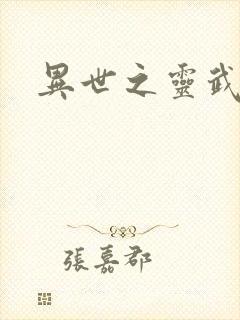 異世之靈武
張嘉郡